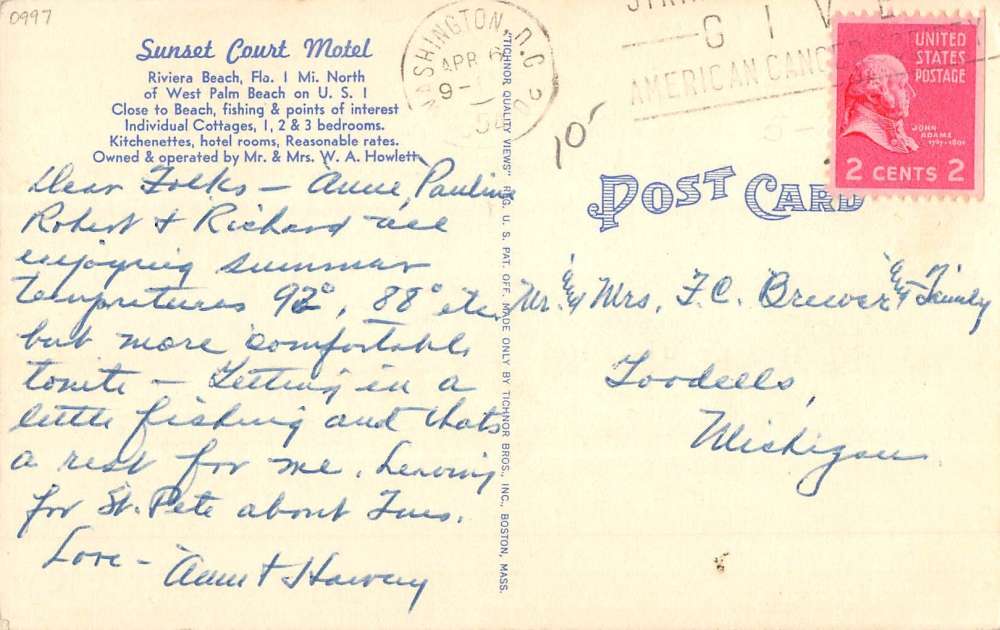 0997
Sunset Court Motel
Riviera Beach, Fla. 1 Mi. North
of West Palm Beach on U. S. 1
Close to Beach, fishing & points of interest
Individual Cottages, 1, 2 & 3 bedrooms.
Kitchenettes, hotel rooms, Reasonable rates.
Owned & operated by Mr. & Mrs. W. A. Howlett
Dear Folks – Anne, Pauline
Robert & Richard are
enjoying summer
tempretures 92°, 88° etc.
but more comfortable
tonite – Getting in a
little fishing and thats
a rest for me. Leaving
for St. Pete about Tues.
Love –
"TICHNOR QUALITY VIEWS" REG. U. S. PAT. OFF. MADE ONLY BY TICHNOR BROS., INC., BOSTON, MASS.
WASHINGTON, D.C.
APR 6
9-
GIVE
AMERICAN CANCER
10-
UNITED
STATES
POSTAGE
JOHN
ADAMS
1797-1801
2 CENTS 2
POST CARD
Mr. & Mrs. F. C. Brewer & Family
Goodells,
Michigan